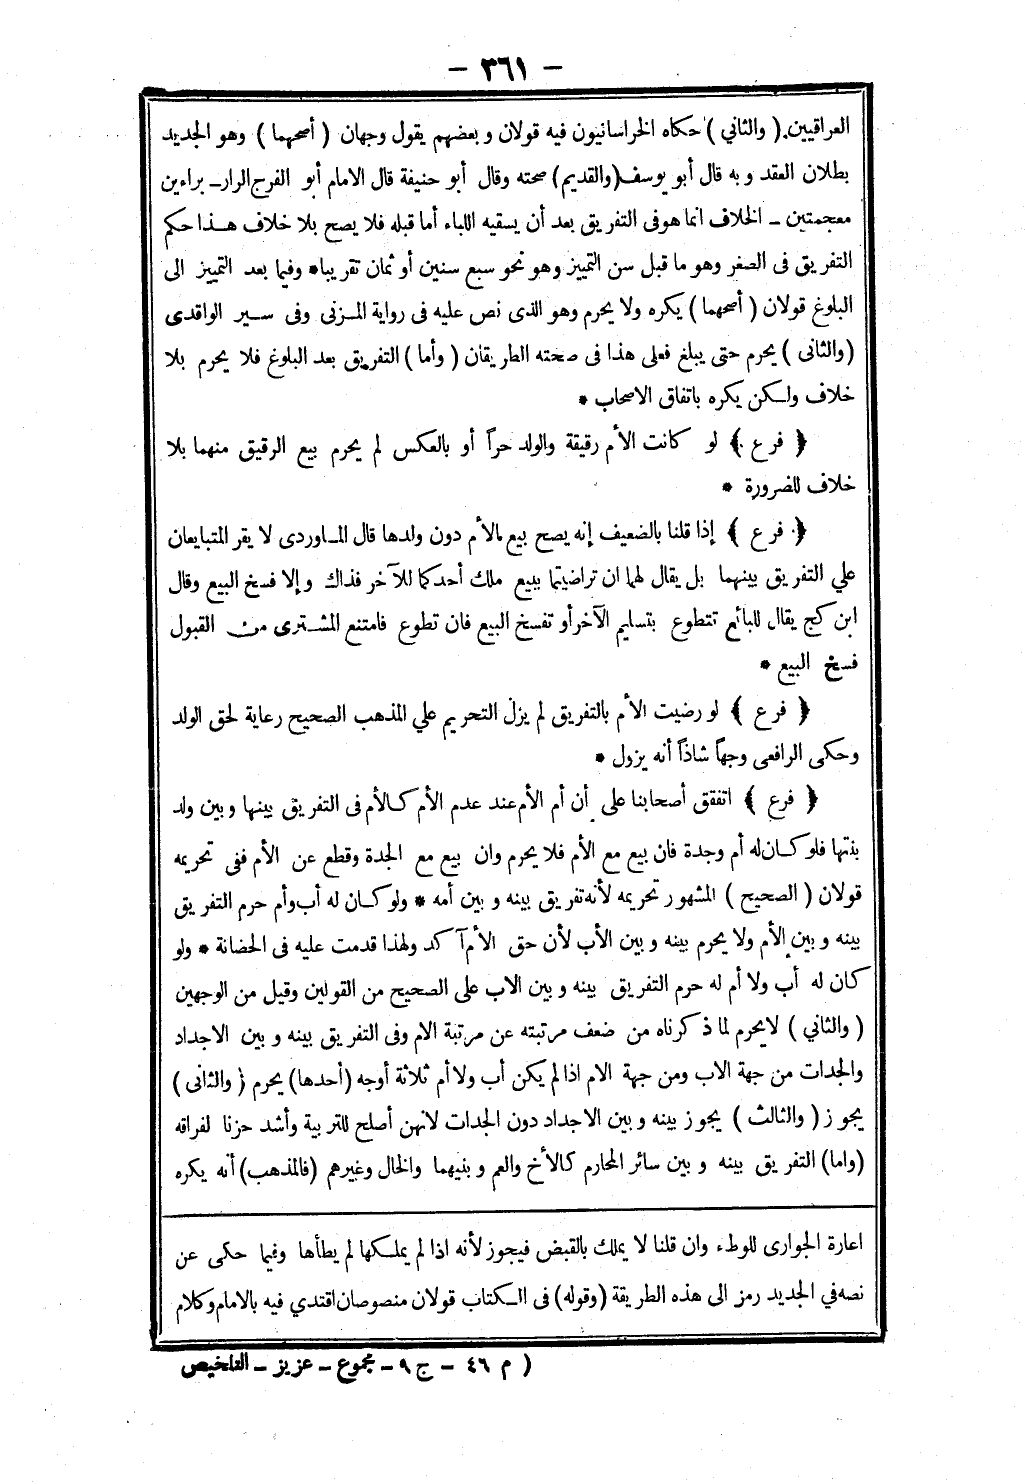 — ٣٦١ —
العراقيين. (والثاني) حكاه الخراسانيون فيه قولان وبعضهم يقول وجهان (أصحهما) وهو الجديد
بطلان العقد وبه قال أبو يوسف (والقديم) صحته وقال أبو حنيفة قال الامام أبو الفرج الزاز ـ براءين
معجمتين ـ الخلاف انما هو فى التفريق بعد أن يسقيه اللباء أما قبله فلا يصح بلا خلاف هـذا حكم
التفريق فى الصغر وهو ما قبل سن التمييز وهو نحو سبع سنين أو ثمان تقريبا * وفيما بعد التمييز الى
البلوغ قولان (أصحهما) يكره ولا يحرم وهو الذى نص عليه فى رواية المـزنى وفى سـير الواقدى
(والثانى) يحرم حتى يبلغ فعلى هذا فى صحته الطريقان (وأما) التفريق بعد البلوغ فلا يحرم بلا
خلاف ولـكن يكره باتفاق الاصحاب *
﴿ فرع ﴾ لو كانت الأم رقيقة والولد حراً أو بالعكس لم يحرم بيع الرقيق منهما بلا
خلاف للضرورة *
﴿ فرع ﴾ إذا قلنا بالضعيف إنه يصح بيع الأم دون ولدها قال المـاوردى لا يقر المتبايعان
علي التفريق بينهما بل يقال لهما ان تراضيتما ببيع ملك أحدكما للآخر فذاك وإلا فسخ البيع وقال
ابن كج يقال للبائع تتطوع بتسليم الآخر أو تفسخ البيع فان تطوع فامتنع المشـترى من القبول
فسخ البيع *
﴿ فرع ﴾ لو رضيت الأم بالتفريق لم يزل التحريم علي المذهب الصحيح رعاية لحق الولد
وحكى الرافعى وجهاً شاذاً أنه يزول *
﴿ فرع ﴾ اتفقق أصحابنا على أن أم الأم عند عدم الأم كـالأم فى التفريق بينها وبين ولد
بنتها فلو كـان له أم وجدة فان بيع مع الأم فلا يحرم وان بيع مع الجدة وقطع عن الأم ففى تحريمه
قولان (الصحيح) المشهور تحريمه لأنه تفريق بينه وبين أمه * ولو كـان له أب وأم حرم التفريق
بينه وبين الأم ولا يحرم بينه وبين الأب لأن حق الأم آكد ولهذا قدمت عليه فى الحضانة * ولو
كان له أب ولا أم له حرم التفريق بينه وبين الاب على الصحيح من القولين وقيل من الوجهين
(والثاني) لايحرم لما ذكرناه من ضعف مرتبته عن مرتبة الام وفى التفريق بينه وبين الاجداد
والجدات من جهة الاب ومن جهة الام اذا لم يكن أب ولا أم ثلاثة أوجه (أحدها) يحرم (والثانى)
يجوز (والثالث) يجوز بينه وبين الاجداد دون الجدات لانهن أصلح للتربية وأشد حزنا لفراقه
(واما) التفريق بينه وبين سائر المحارم كالأخ والعم وبنيهما والخال وغيرهم (فالمذهب) أنه يكره
اعارة الجوارى للوطء وان قلنا لا يملك بالقبض فيجوز لأنه اذا لم يملـكها لم يطأها وفيما حكى عن
نصه في الجديد رمز الى هذه الطريقة (وقوله) فى الـكتاب قولان منصوصان اقتدي فيه بالامام وكلام
( م ٤٦ — ج ٩ — مجموع — عزيز — التلخيص